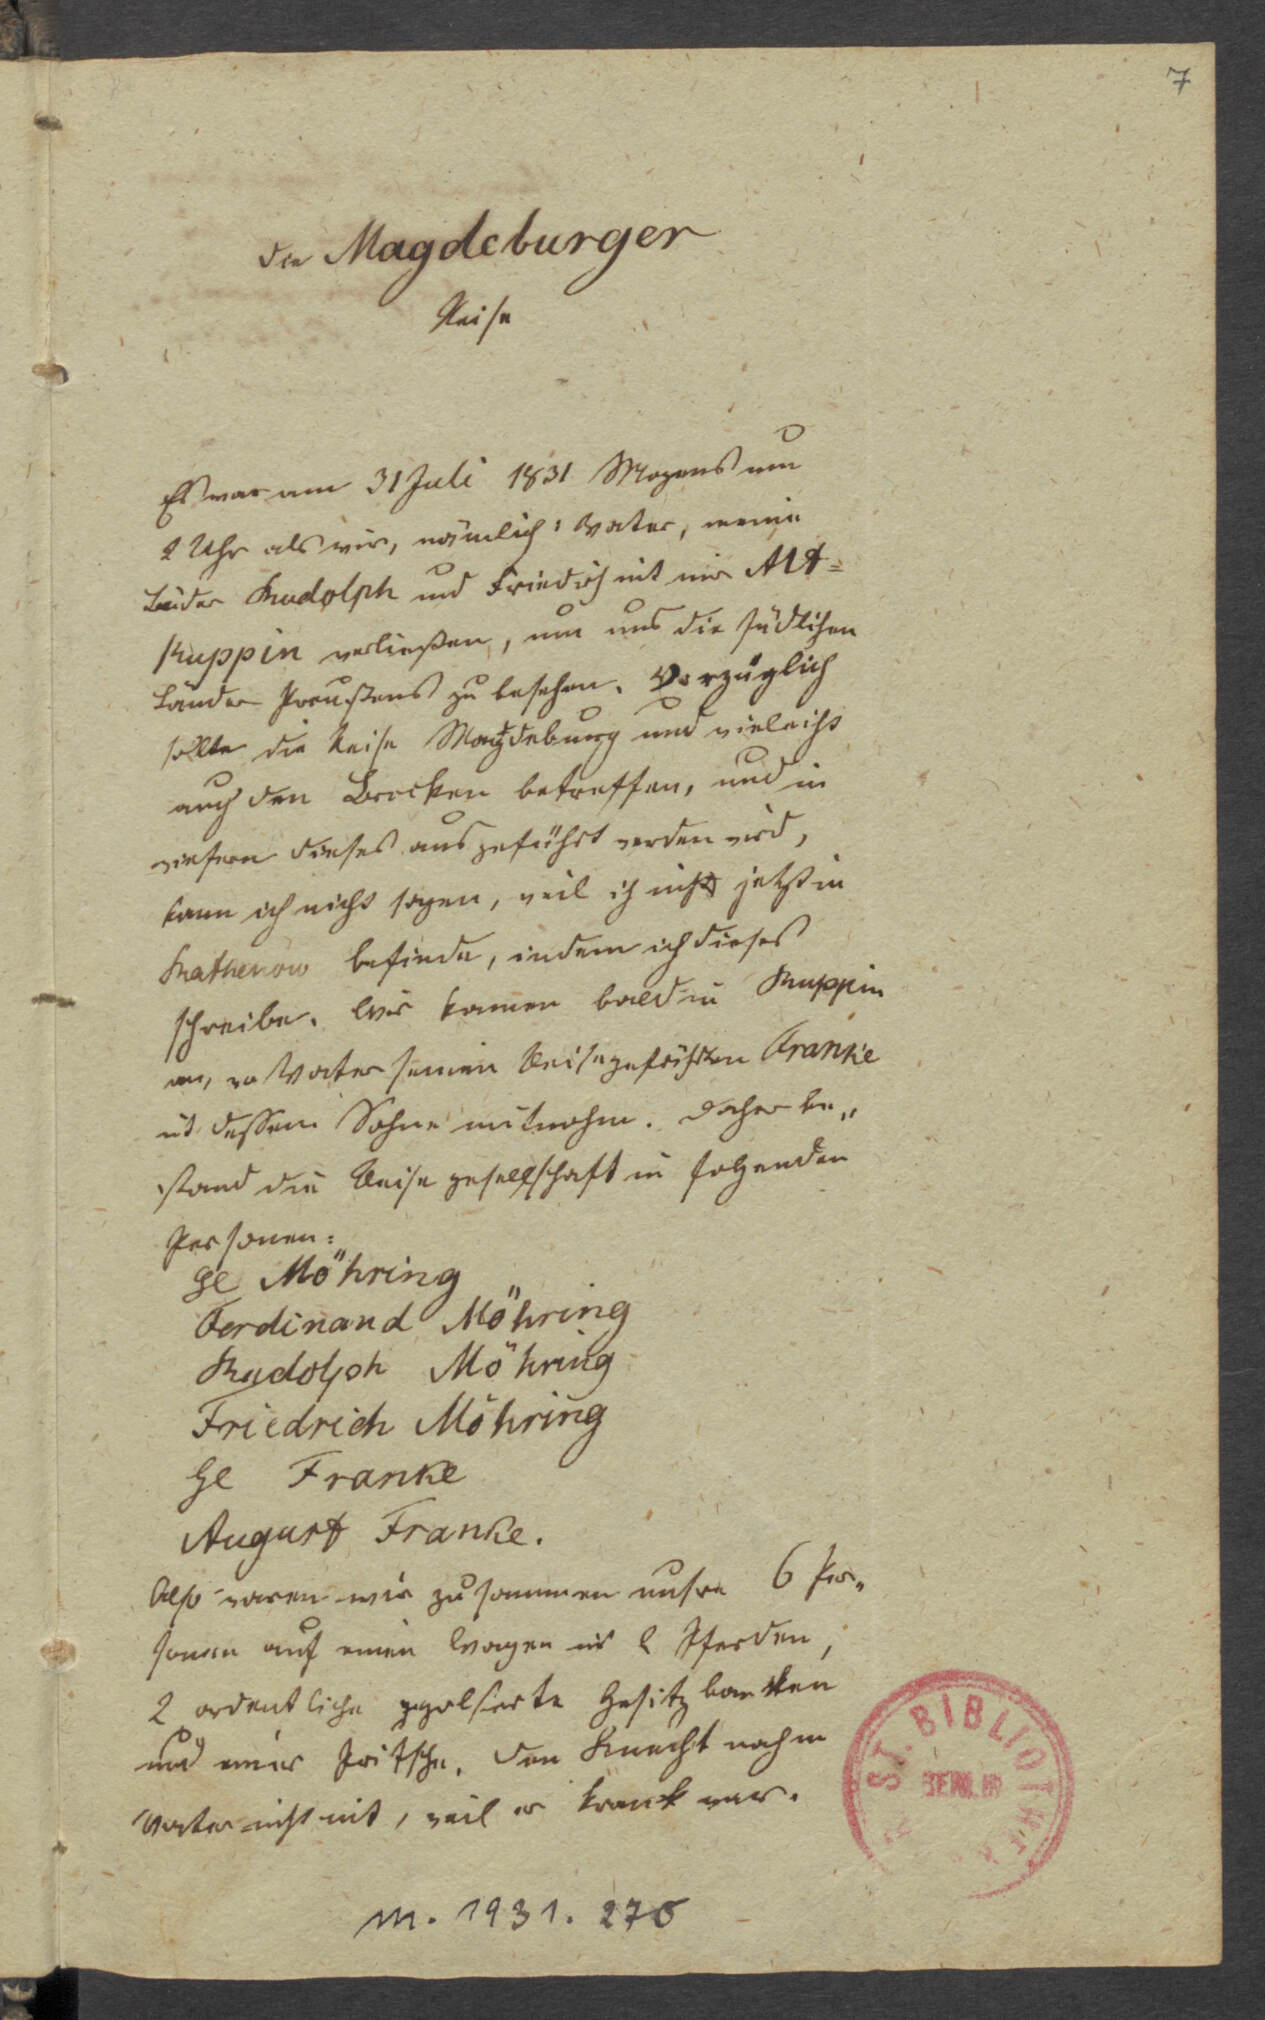 7
Die Magdeburger
Reise
Es war am 31 Juli 1831 Morgens um
2 Uhr als wir, nämlich: Vater, meine
Brüder Rudolph und Friedrich mit mir Alt=
Ruppin verließen, um uns die südlichen
Länder Preußens zu besehen. Vorzüglich
sollte die Reise Magdeburg und vieleicht
auch den Brocken betreffen, und in
wiefern dieses ausgeführt werden wird,
kann ich nicht sagen, weil ich mich jetzt in
Rathenow befinde, indem ich dieses
schreibe. Wir kamen bald in Ruppin
an, wo Vater seinen Reisegefährten Franke
mit dessen Sohne mitnahm. Daher be„
stand die Reisegesellschaft in folgenden
Personen:
Möhring
Ferdinand Möhring
Rudolph Möhring
Friedrich Möhring
Franke
August Franke.
Also waren wir zusammen unsre 6 Per„
sonen auf einen Wagen mit 2 Pferden,
2 ordentliche gepolsterte Gesitzbancken
und einer Pritsche. Den Knecht nahm
Vater nicht mit, weil er krank war.
ST. BIBLIOTHEK
BERLIN
M. 1931. 276